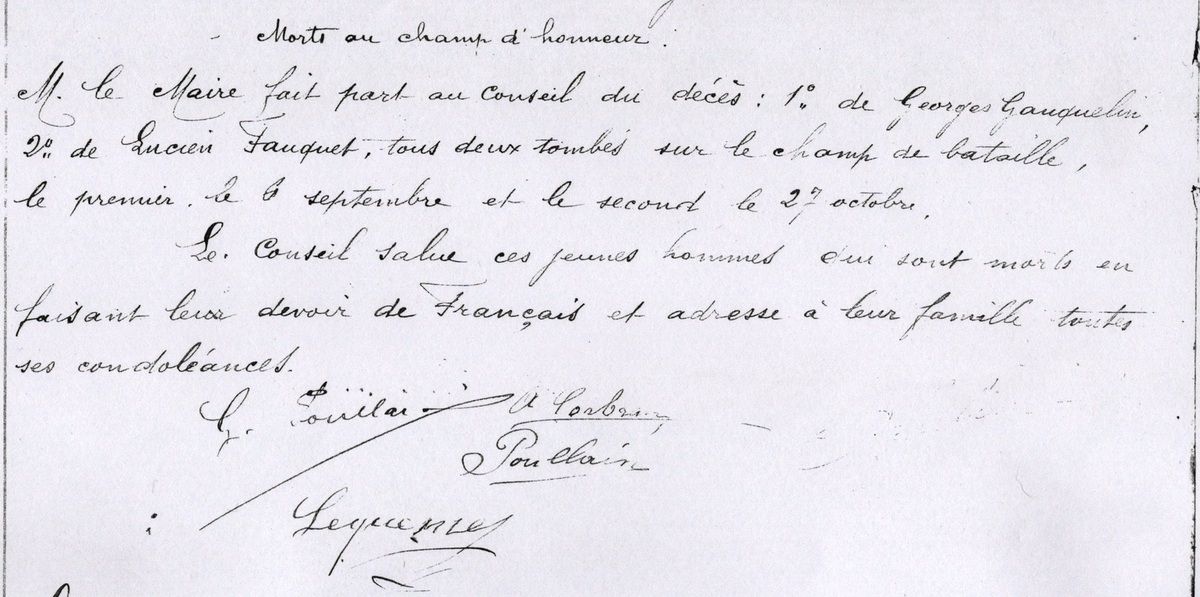 - Morts au champ d'honneur.
M. le Maire fait part au Conseil du décès : 1º de Georges Gauquelin,
2º de Lucien Fauquet, tous deux tombés sur le champ de bataille,
le premier, le 6 septembre et le second le 27 octobre.
Le Conseil salue ces jeunes hommes qui sont morts en
faisant leur devoir de Français et adresse à leur famille toutes
ses condoléances.
G.
Poullain